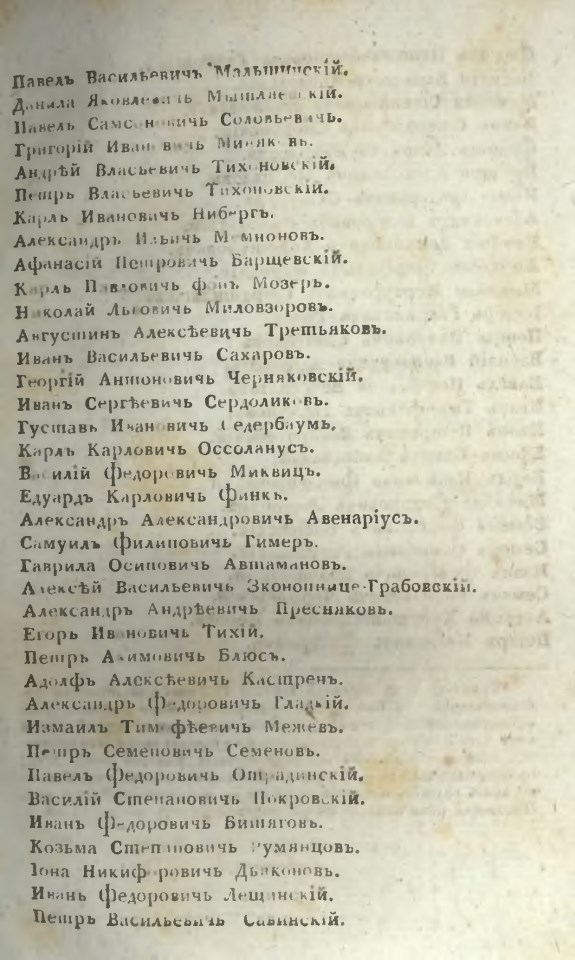 Павелъ Васильевичъ Малышинскій.
Данила Яковлевичь Мышляевскій.
Павелъ Самсоновичь Соловьевичь.
Григорій Ивановичь
Андрѣй Власьевичь Тихоновскій.
Петръ Власьевичь Тихоновскій.
Карлъ Ивановичь Нибергъ.
Александръ Ильичь Мемноновъ.
Афанасій Петровичь Барщевскій.
Карль Павловичь фонъ Мозеръ.
Николай Львовичь Миловзоровъ.
Августинъ Алексѣевичь Третьяковъ.
Иванъ Васильевичь Сахаровъ.
Георгій Антоновичь Черняковскій.
Иванъ Сергѣевичь Сердоликовъ.
Густавъ Ивановичь Седербаумъ.
Карлъ Карловичь Оссоланусъ.
Василій Федоровичь Миквицъ.
Едуардъ Карловичь Финкь.
Александръ Александровичь Авенаріусъ.
Самуилъ Филиповичь Гимеръ.
Гаврила Осиповичь Автамановъ.
Алексѣй Васильевичь Экономнице-Грабовскій.
Александръ Андрѣевичь Пресняковъ.
Егоръ Ивановичь Тихій.
Петръ Акимовичь Блюсъ.
Адолфъ Алексѣевичь Кастренъ.
Александръ Федоровичь Гладкій.
Измаилъ Тимофѣевичь Межевъ.
Петръ Семеновичь Семеновъ.
Павелъ Федоровичь Отрадинскій.
Василій Степановичь Покровскій.
Иванъ Федоровичь Битяговъ.
Козьма Степановичь Румянцовъ.
Іона Никифоровичь Дьяконовъ.
Иванъ Федоровичь Лещинскій.
Петръ Васильевичь Савинскій.